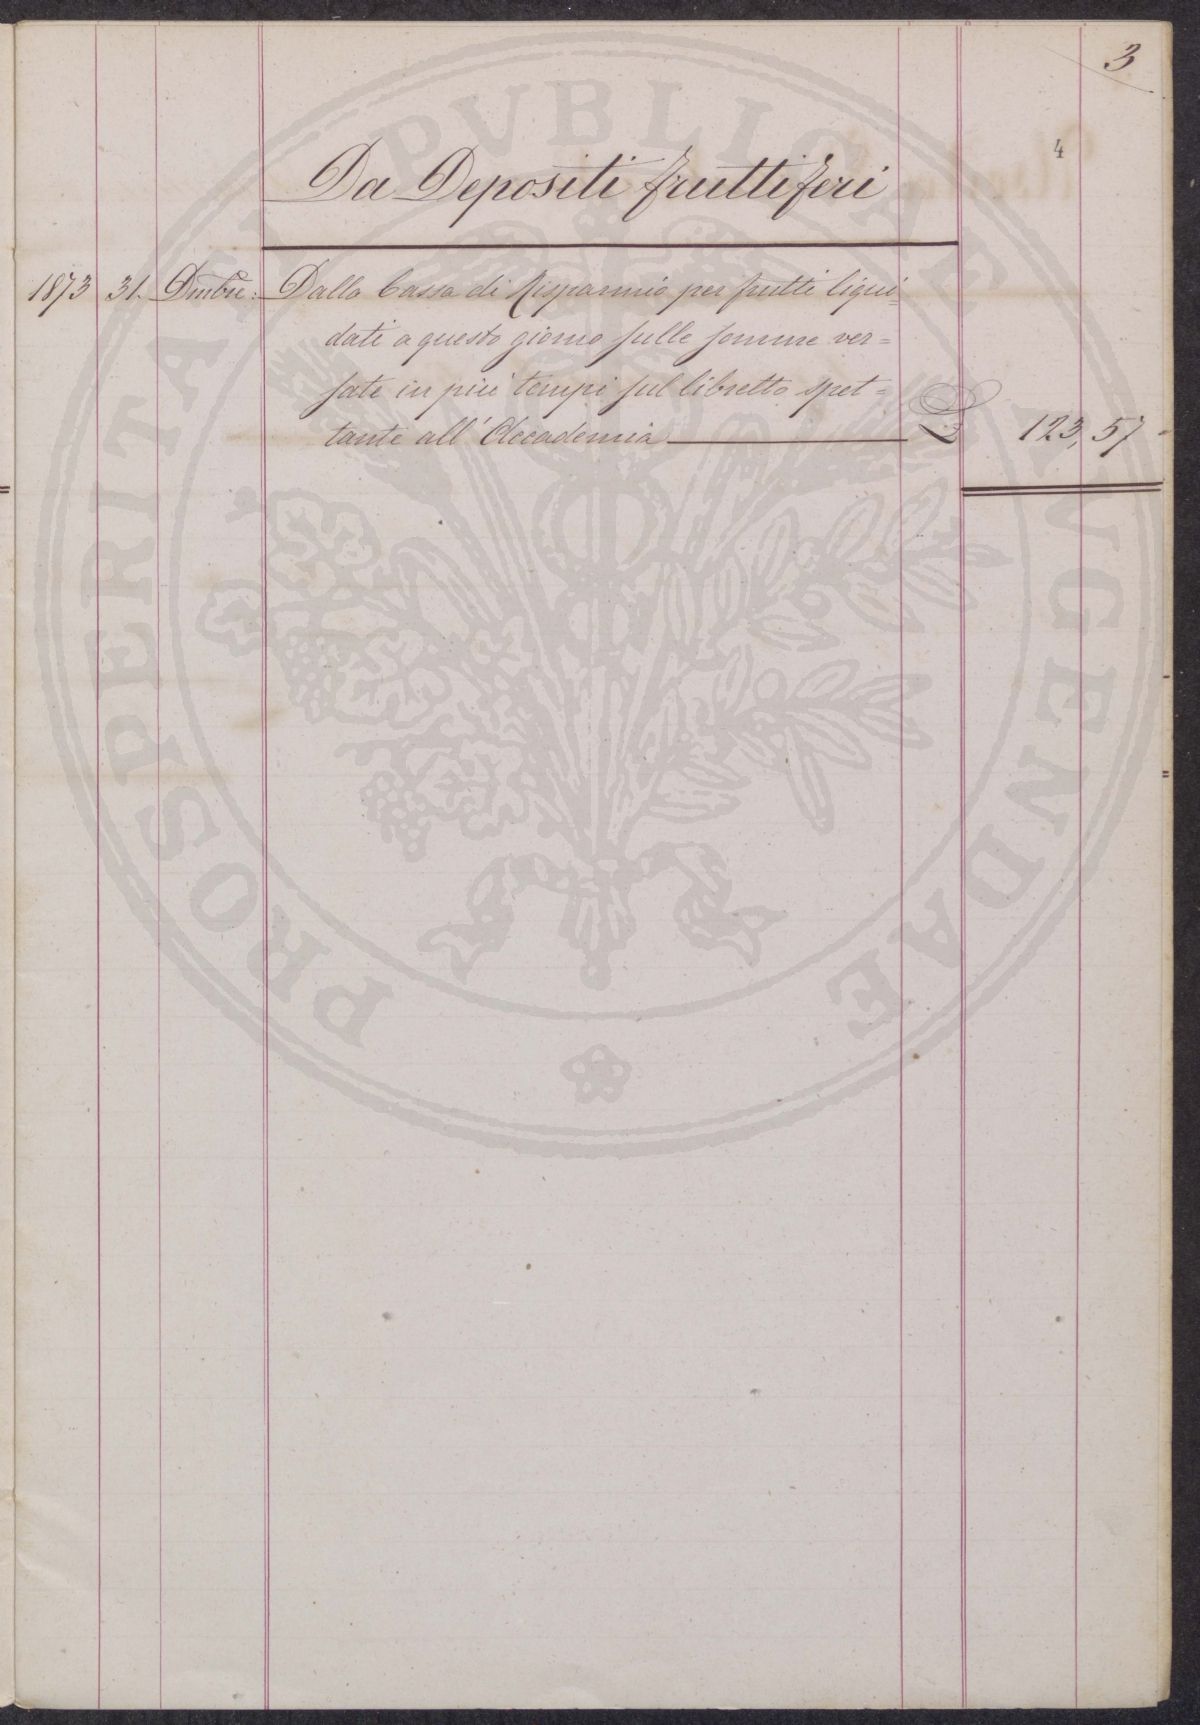 3
4
Da Depositi fruttiferi
1873 31. Dmbre: Dalla Cassa di Risparmio per frutti liqui=
dati a questo giorno sulle somme ver=
sate in più tempi sul libretto spet=
tante all'Accademia £ 123,57
PROSPERITATI PVBLICAE AVGENDAE